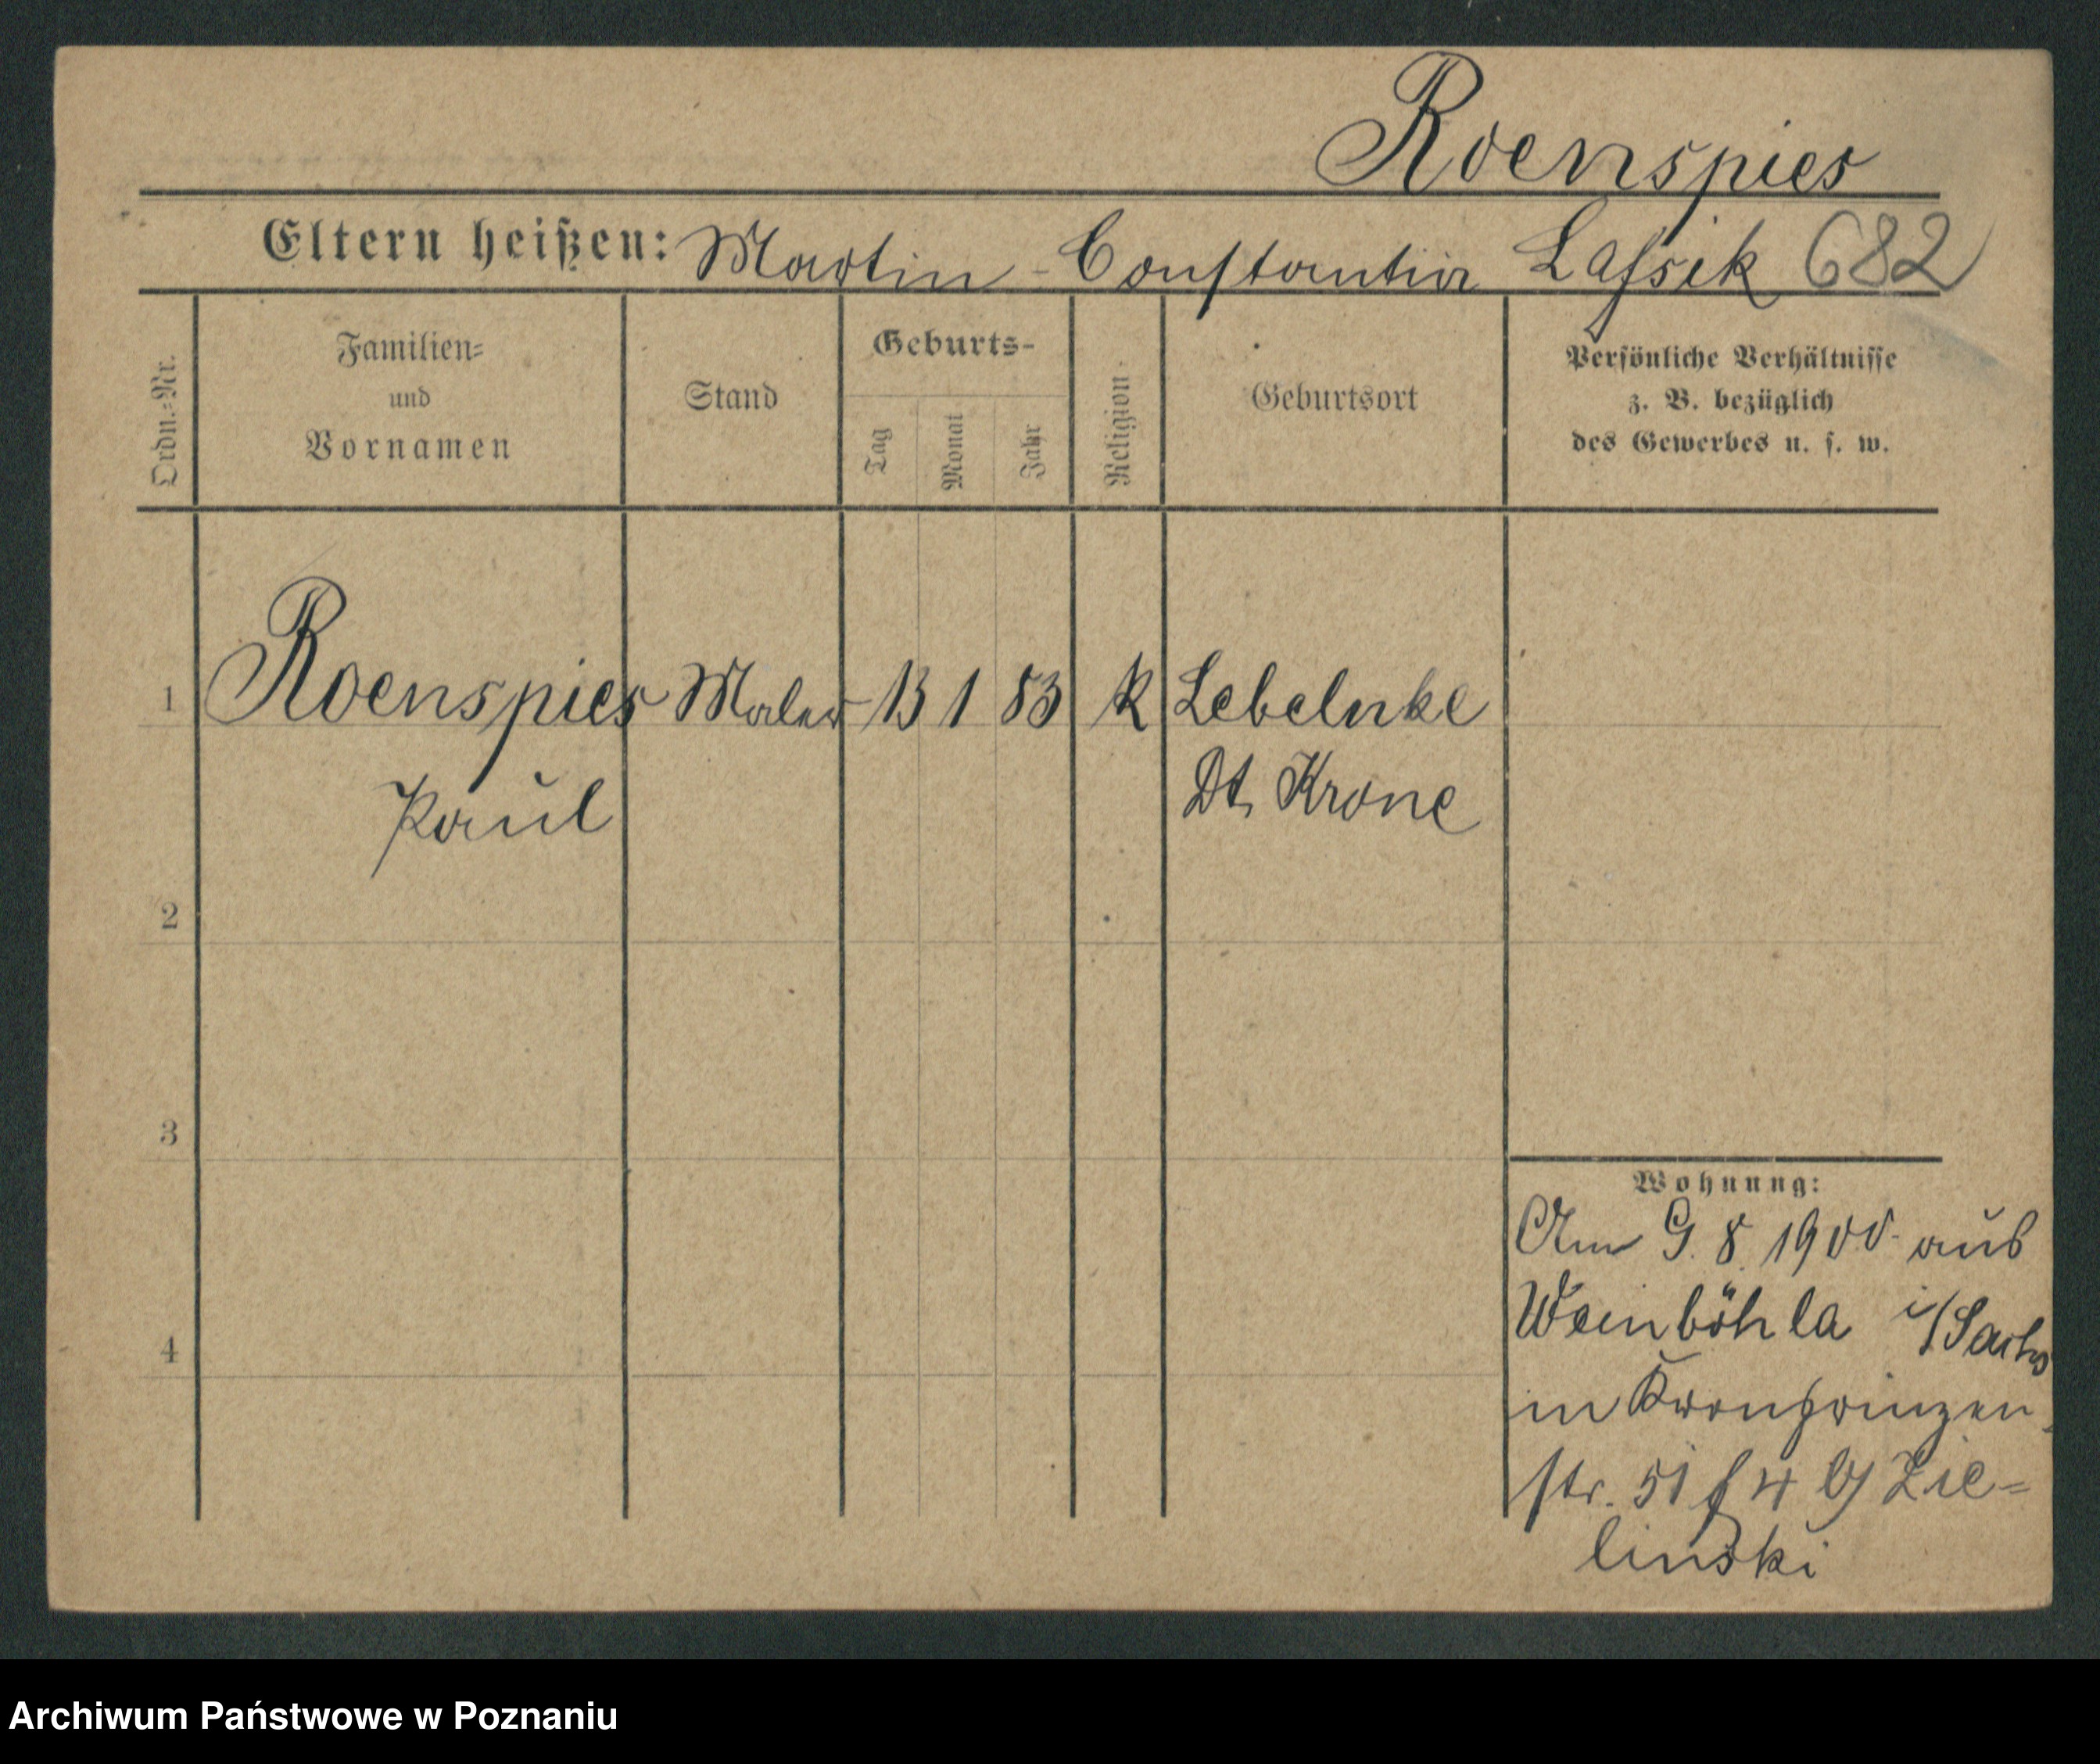 Roenspies
Eltern heißen: Martin - Constantia Lassik 682
Ordn.=Nr.
Familien=
und
Vornamen
Stand
Geburts-
Tag
Monat
Jahr
Religion.
Geburtsort
Persönliche Verhältnisse
z. B. bezüglich
des Gewerbes u. s. w.
1 Roenspies Maler 13 1 83 k Lebelnke
Paul Dt. Krone
2
3
4
Wohnung:
Am 9. 8. 1900. aus
Weinböhla i/Sachs
in Kronprinzen
str. 51 f 4 b/ Zie=
linski
Archiwum Państwowe w Poznaniu